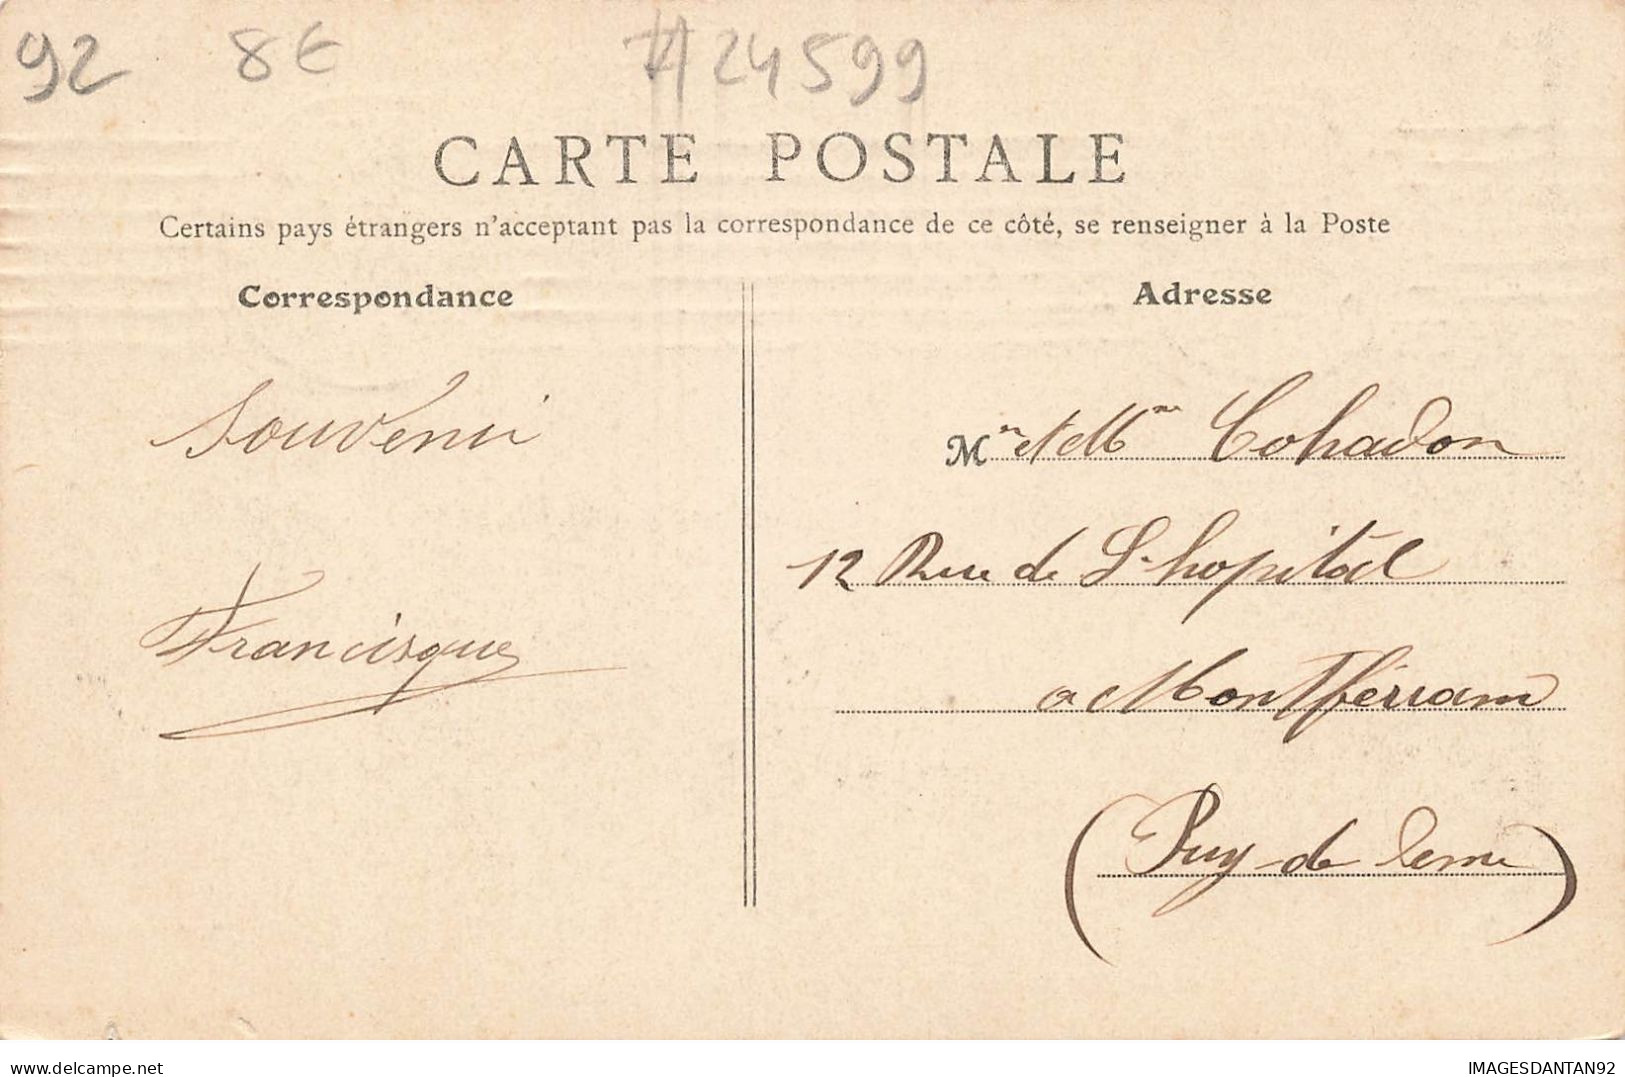 92 8€ #24599
CARTE POSTALE
Certains pays étrangers n'acceptant pas la correspondance de ce côté, se renseigner à la Poste
Correspondance
Adresse
Souvenir
Francisque
Mr et Mme Cohadon
12 Rue de L'hopital
a Montferrand
(Puy-de Dome)
delcampe.net
IMAGESDANTAN92